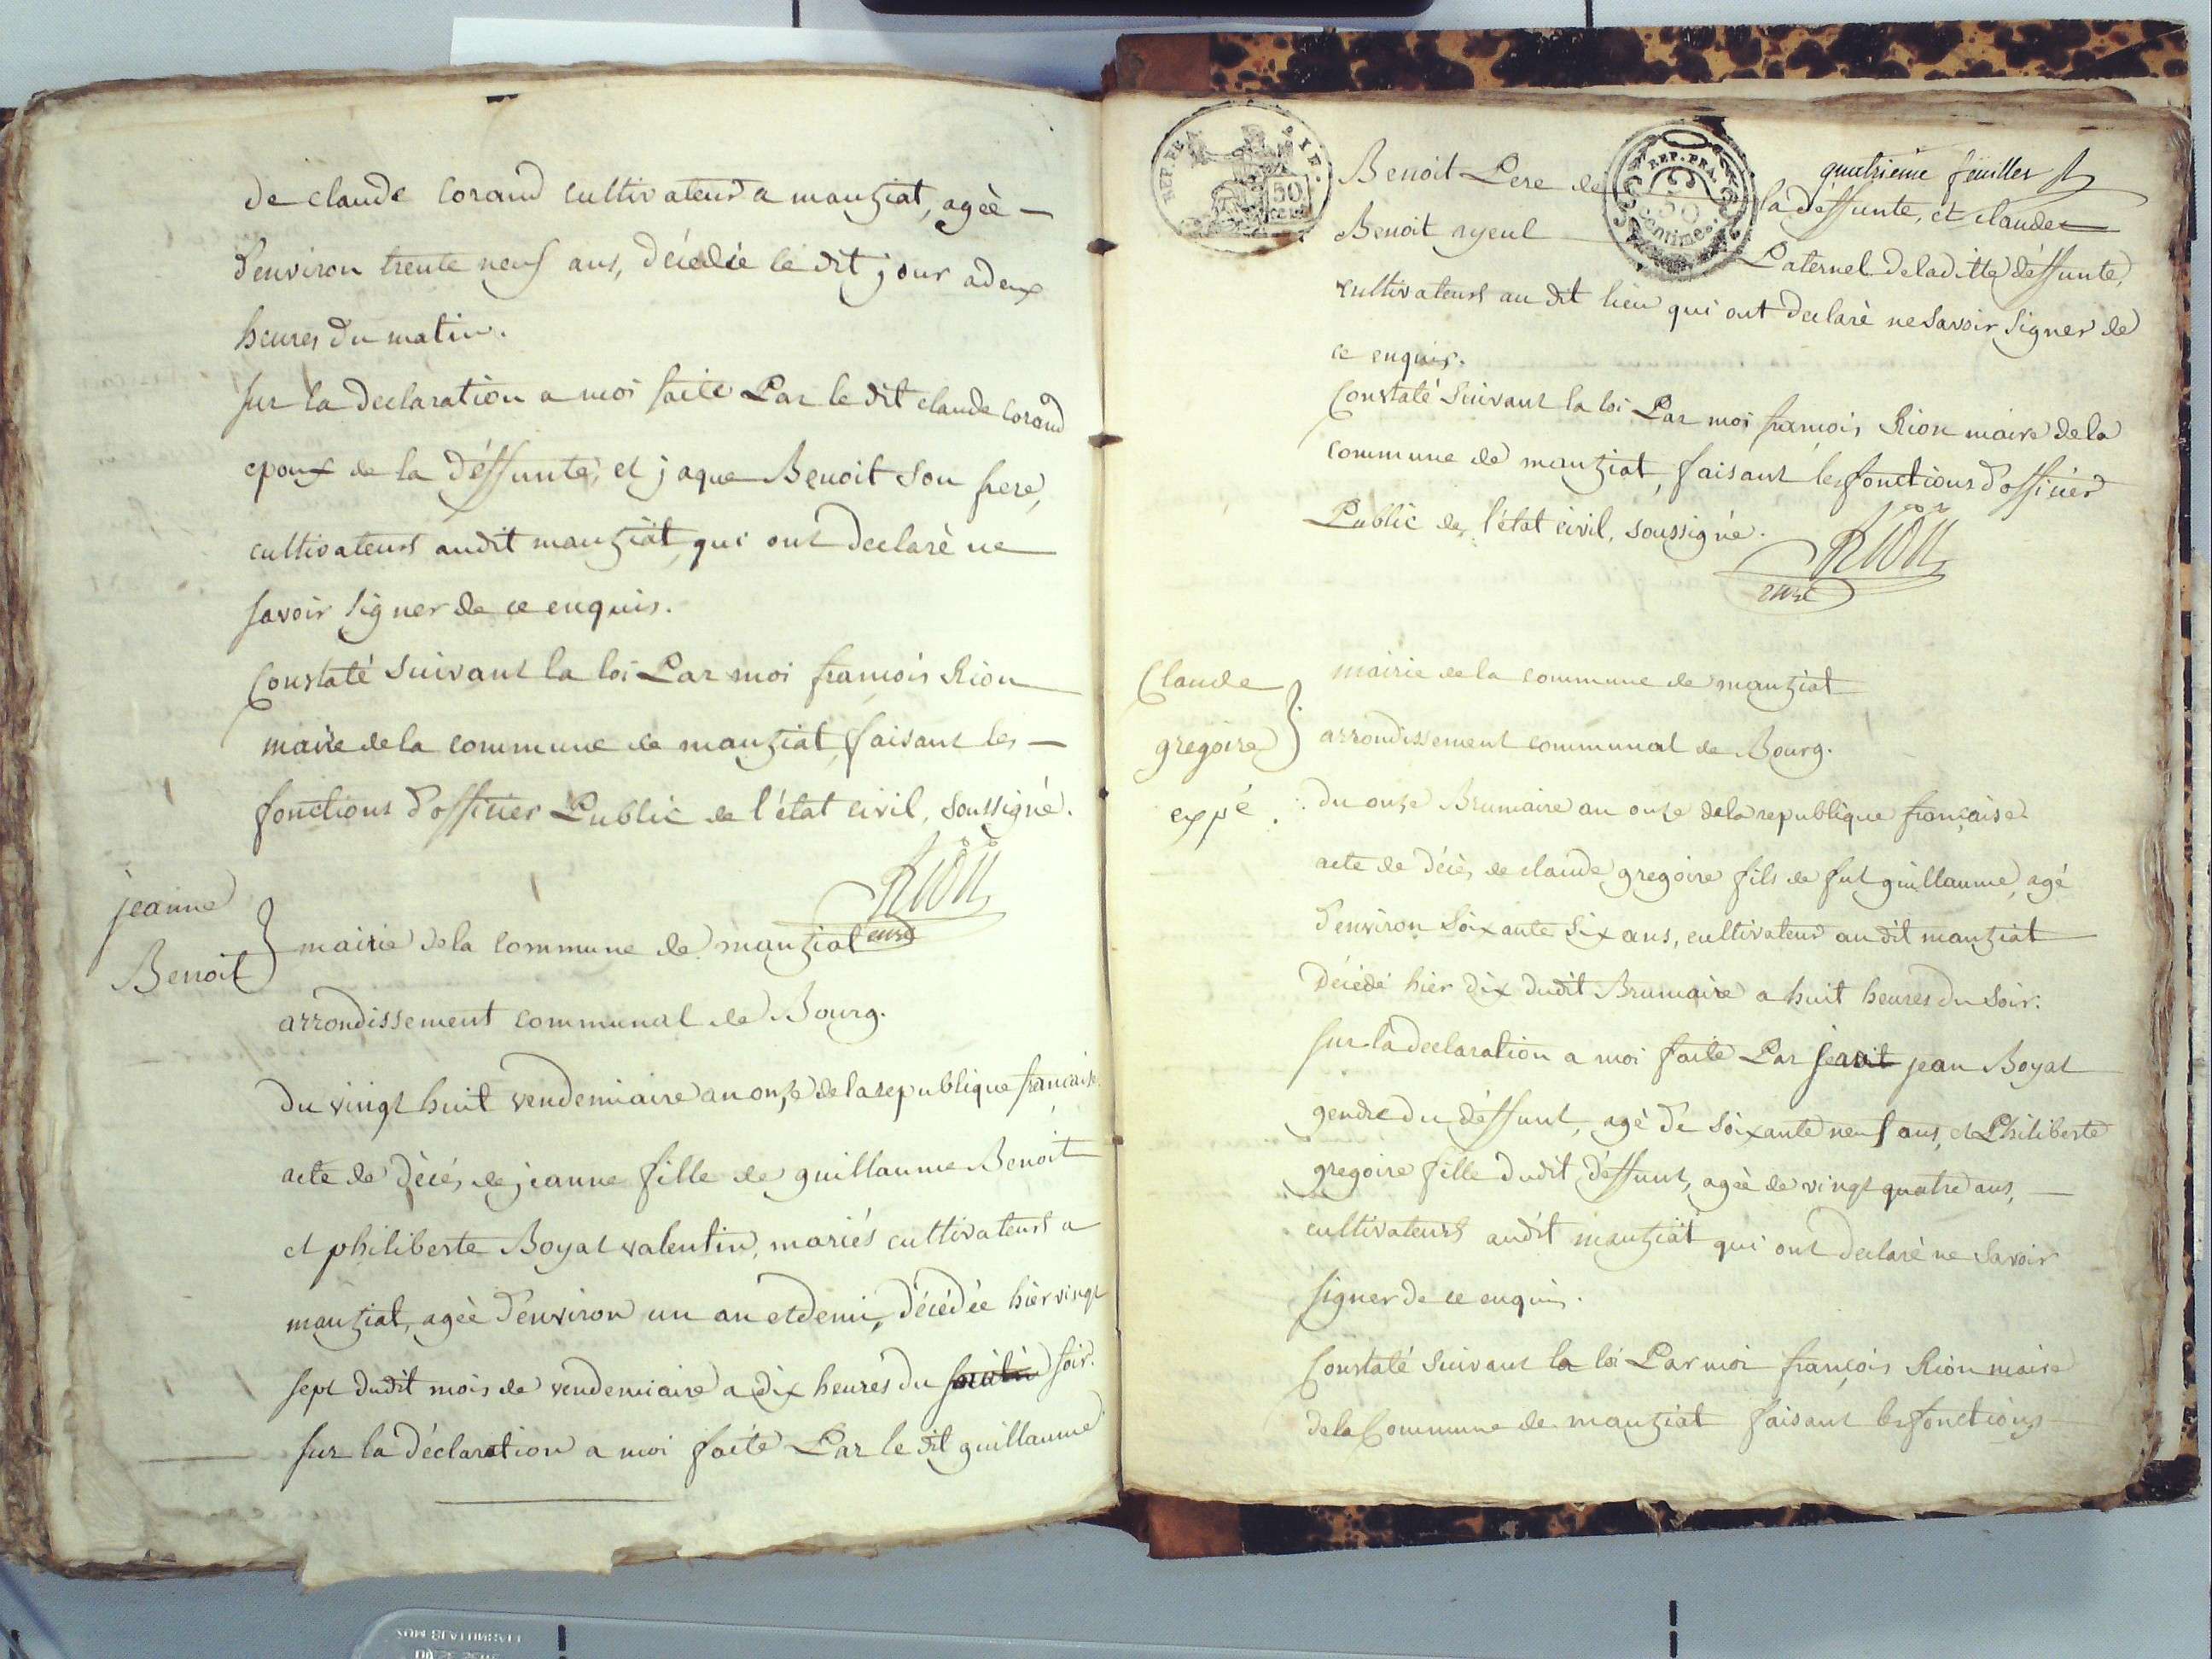 de claude Corand cultivateur a manziat, ageè
d'environ trente neuf ans, décedée le dit jour a deux
heures du matin.
sur la declaration a moi faite Par le dit claude Corand
epoux de la déffunte, et jaque Benoit Son frere,
cultivateurs audit manziat, qui ont declaré ne
savoir signer de ce enquis.
Constaté Suivant la loi Par moi francois Rion
maire de la commune de manziat, faisant les
fonctions d'officier Public de l'état civil, soussigné.
Rion
jeanne
Benoit
mairie de la Commune de manziat
arrondissement communal de Bourg.
Du vingt huit vendemiaire an onze de la republique francaise.
acte de décés de jeanne fille de guillaume Benoit
et philiberte Boyat valentin, mariés cultivateurs a
manziat, ageè d'environ un an et demi, décédée hier vingt
sept dudit mois de vendemiaire a dix heures du soir.
sur la déclaration a moi faite Par le dit guillaume
quatrieme feuillet
REP. FRA
50
REP. FRA.
50
centimes.
Benoit Pere de la déffunte, et claude
Benoit ayeul Paternel de la ditte déffunte,
cultivateurs au dit lieu qui ont declaré ne Savoir Signer de
ce enquis.
Constaté Suivant la loi Par moi francois Rion maire de la
commune de manziat, faisant les fonctions d'officier
Public de l'état civil, soussigné.
Rion
Claude
gregoire
expé
mairie de la commune de manziat
arrondissement communal de Bourg.
du onze Brumaire an onze de la republique française
acte de décés de claude gregoire fils de fut guillaume, agé
d'environ Soixante Six ans, cultivateur au dit manziat
décédé hier dix dudit Brumaire a huit heures du Soir.
sur la declaration a moi faite Par jean Boyat
gendre du déffunt, agé de Soixante neuf ans, et Philiberte
gregoire fille dudit déffunt, ageè de vingt quatre ans,
cultivateurs audit manziat qui ont declaré ne Savoir
signer de ce enquis.
Constaté Suivant la loi Par moi françois Rion maire
de la Commune de manziat faisant les fonctions